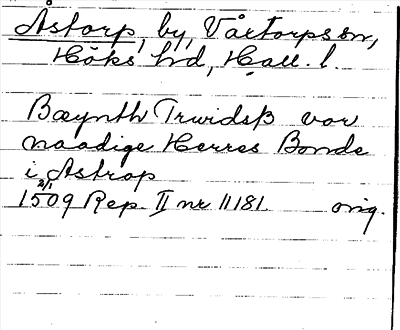 Åstorp, by, Vårtorps sn,
Höks hd, Hall. l.
Bæynth Trwidsβ vor
naadige Herres Bonde
i Astrop
2/1
1509 Rep. II nr 11181. orig.